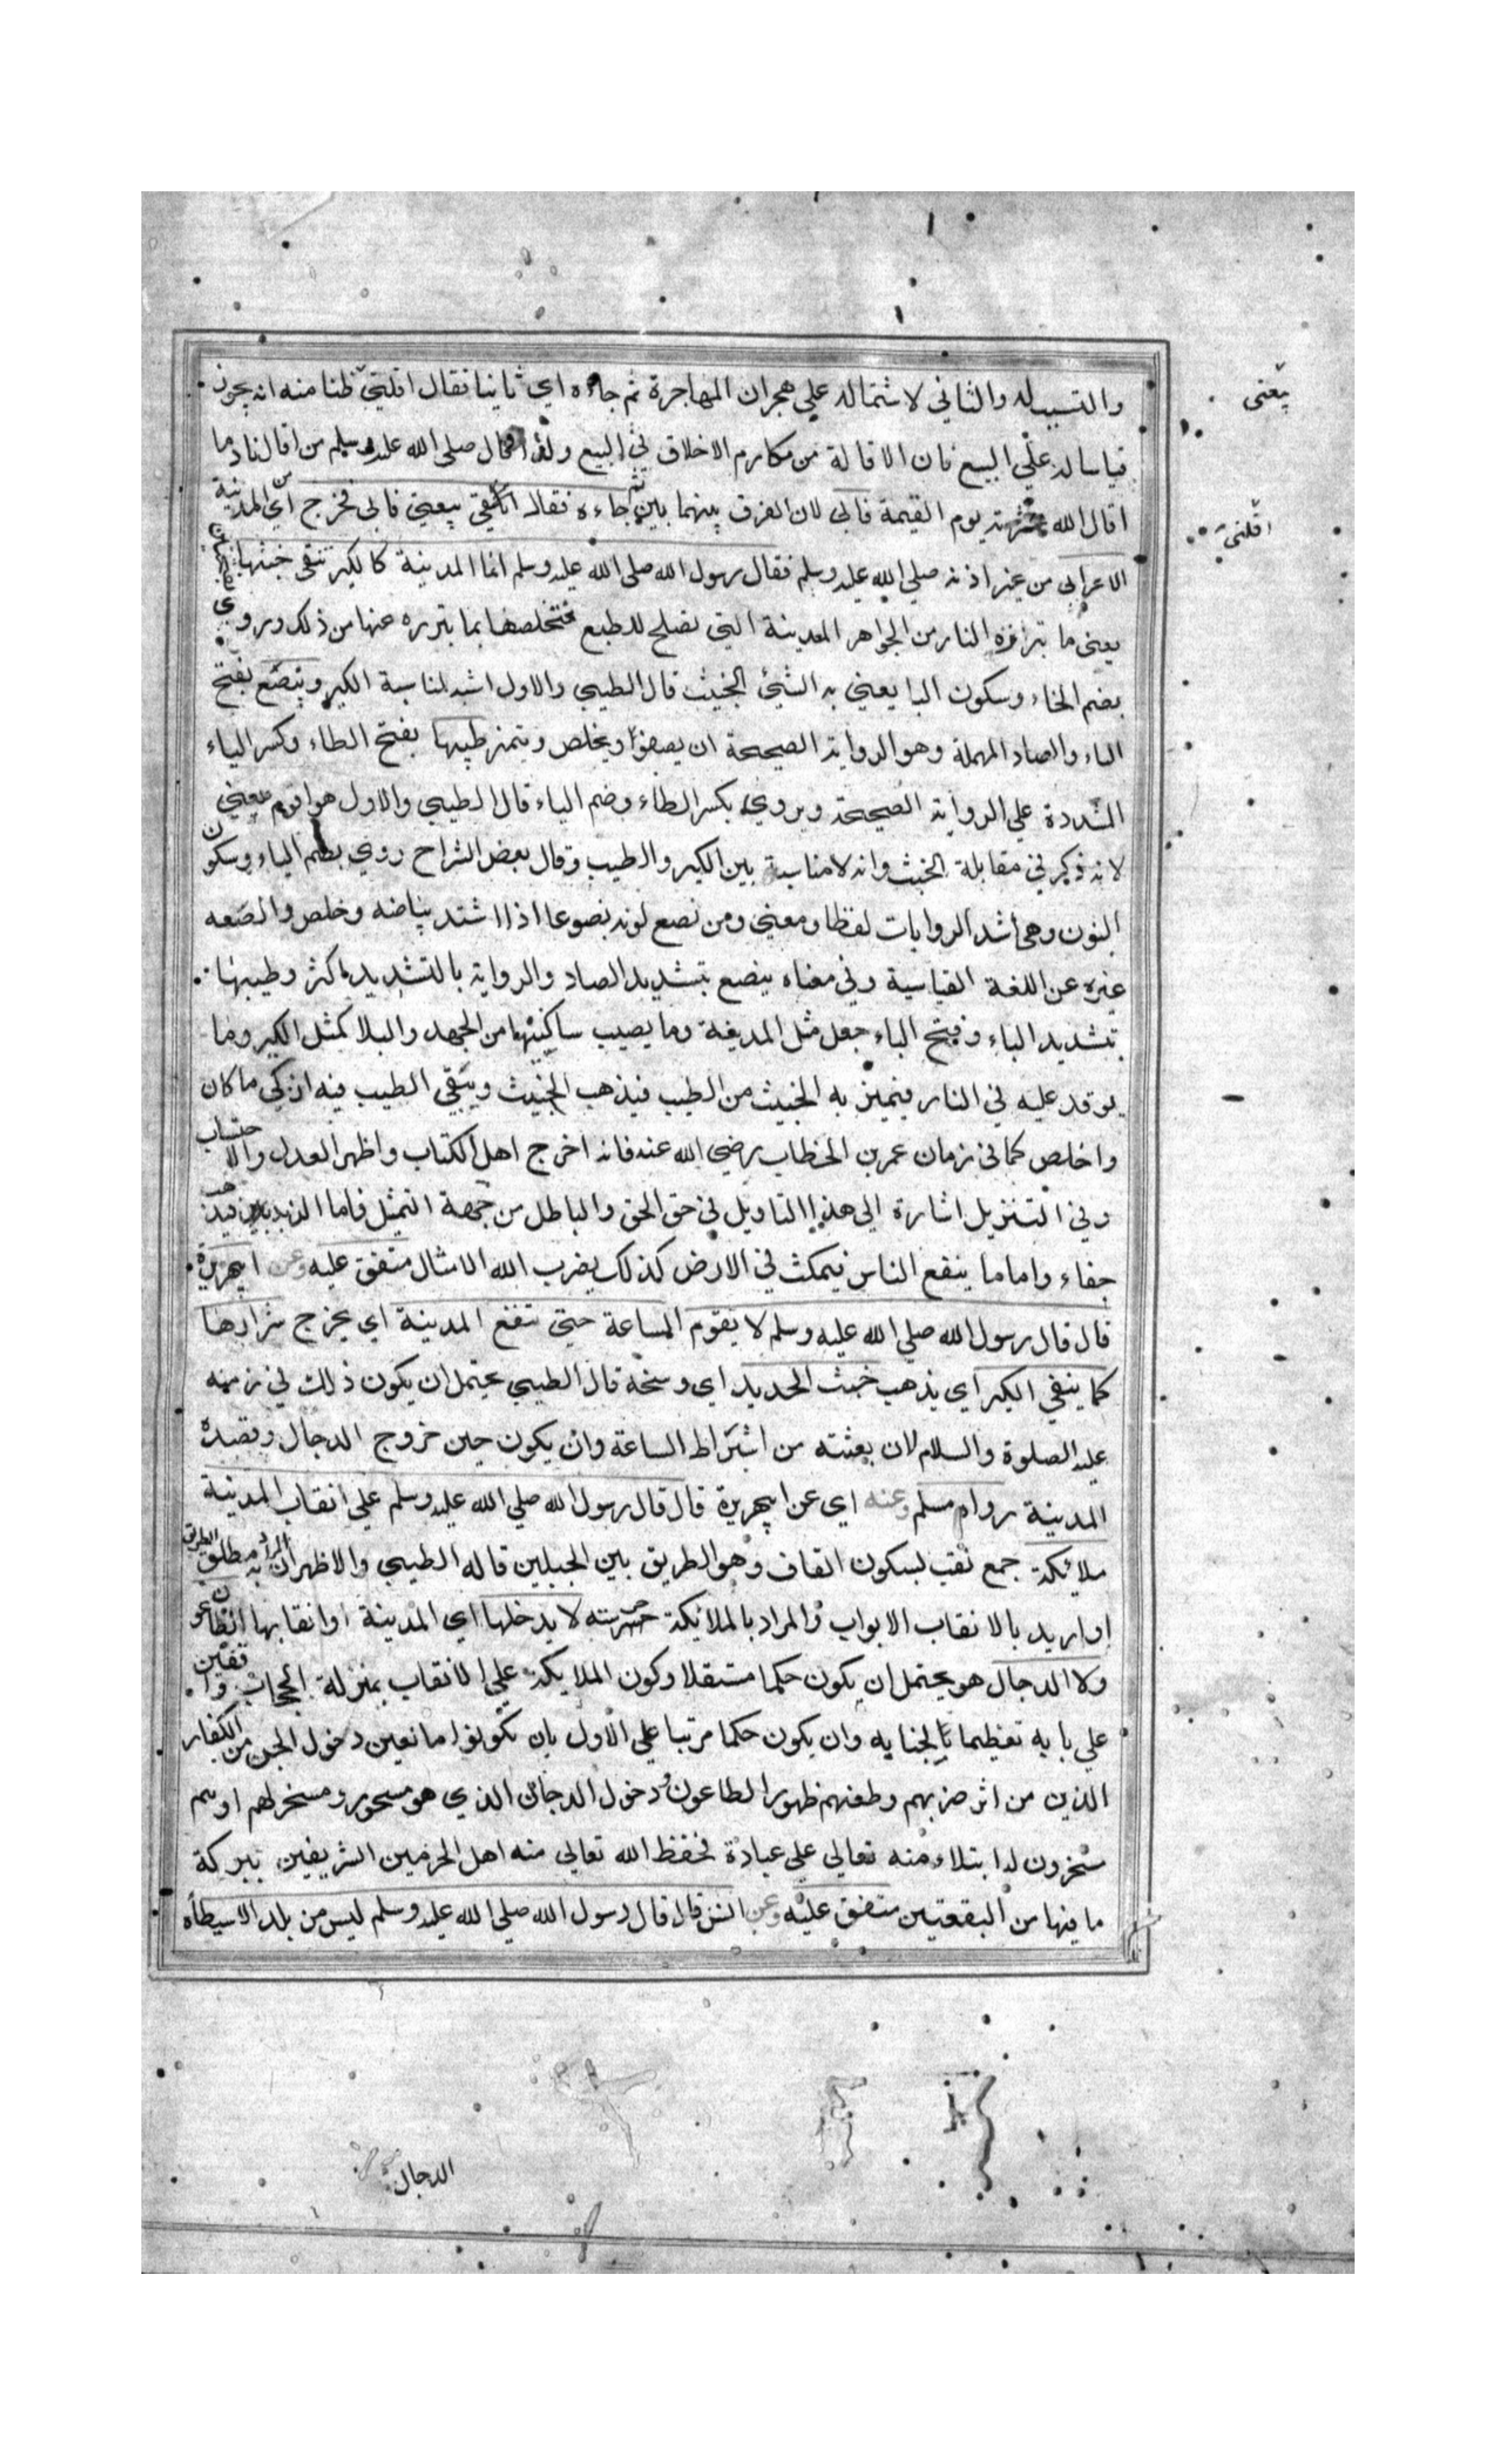 والتسبب له والثاني لاشتماله علي هجران المهاجرة ثم جاءه اي ثانيا فقال اقلني ظنا منه انه يجوز
قياسا له علي البيع فان الاقالة من مكارم الاخلاق في البيع ولذا قال صلي الله عليه وسلم من اقال نادما
اقال الله عثرته يوم القيمة فابي لان الفرق بينهما بين ثم جاءه فقال اقلني بيعتي فابي فخرج اي من المدينة
الاعرابي من غير اذنه صلي الله عليه وسلم فقال رسول الله صلي الله عليه وسلم انما المدينة كالكير تنفي خبثها
يعني ما تبرزه النار من الجواهر المعدنية التي تصلح للطبع فتخلصها بما تبرزه عنها من ذلك وروي
بضم الخاء وسكون البا يعني به الشئ الخبيث قال الطيبي والاول اشبه لمناسبة الكير وينصع بفتح
الياء والصاد المهملة وهو الرواية الصحيحة ان يصفو ويخلص ويتميز طيبها بفتح الطاء وكسر الياء
المشددة علي الرواية الصحيحة ويروي بكسر الطاء وضم الياء قال الطيبي والاول هو اقوم معني
لانه ذكر في مقابلة الخبث وانه لا مناسبة بين الكير والطيب وقال بعض الشراح روي بضم الياء وسكون
النون وهي أشد الروايات لفظا ومعني ومن نصع لونه نصوعا اذا اشتد بياضه وخلص وانصعه
غيره عن اللغة القياسية وفي معناه ينصع بتشديد الصاد والرواية بالتشديد اكثر وطيبها
بتشديد الياء وفتح الباء جعل مثل المدينة وما يصيب ساكنيها من الجهد والبلا كمثل الكير وما
يوقد عليه في النار فيميز به الخبيث من الطيب فيذهب الخبيث ويبقي الطيب فيه ازكي ما كان
واخلص كما في زمان عمر بن الخطاب رضي الله عنه فانه اخرج اهل الكتاب واظهر العدل والاحتساب
وفي التنزيل اشارة الي هذا التاويل في حق الحق والباطل من جهة التمثل فاما الزبد فيذهب
جفاء واما ما ينفع الناس فيمكث في الارض كذلك يضرب الله الامثال متفق عليه وعن ابي هريرة
قال قال رسول الله صلي الله عليه وسلم لا يقوم الساعة حتي تنفع المدينة اي يخرج شرارها
كما ينفي الكير اي يذهب خبث الحديد اي وسخه قال الطيبي يحتمل ان يكون ذلك في زمنه
عليه الصلوة والسلام لان بعثته من اشتراط الساعة وان يكون حين خروج الدجال وقصده
المدينة رواه مسلم وعنه اي عن ابي هريرة قال قال رسول الله صلي الله عليه وسلم علي انقاب المدينة
ملائكة جمع نقب بسكون القاف وهو الطريق بين الجبلين قاله الطيبي والاظهر ان المراد به مطلق الطريق
او اريد بالانقاب الابواب والمراد بالملائكة حرسته لا يدخلها اي المدينة او انقابها الطاعون
ولا الدجال هو يحتمل ان يكون حكما مستقلا وكون الملايكة علي الانقاب بمنزلة الحجاب واقفين
علي بابه تعظيما لجنابه وان يكون حكما مرتبا علي الاول بان تكونوا مانعين دخول الجن من الكفار
الذين من اثر ضربهم وطعنهم ظهور الطاعون ودخول الدجال الذي هو مسحور ومسخر لهم اوهم
مسخرون له ابتلاء منه تعالي علي عباده فحفظ الله تعالي منه اهل الحرمين الشريفين ببركة
ما فيها من البقعتين متفق عليه وعن انس قال قال رسول الله صلي الله عليه وسلم ليس من بلد الا سيطأه
الدجال
بيعتي
اقلني